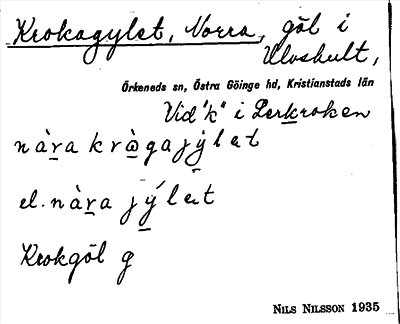 Krokagylet, Norra, göl i
Ulvshult,
Örkeneds sn, Östra Göinge hd, Kristianstads län
Vid "k" i Lerkroken
nàra kràgajýlet
el. nàra jýlet
Krokgöl g
NILS NILSSON 1935